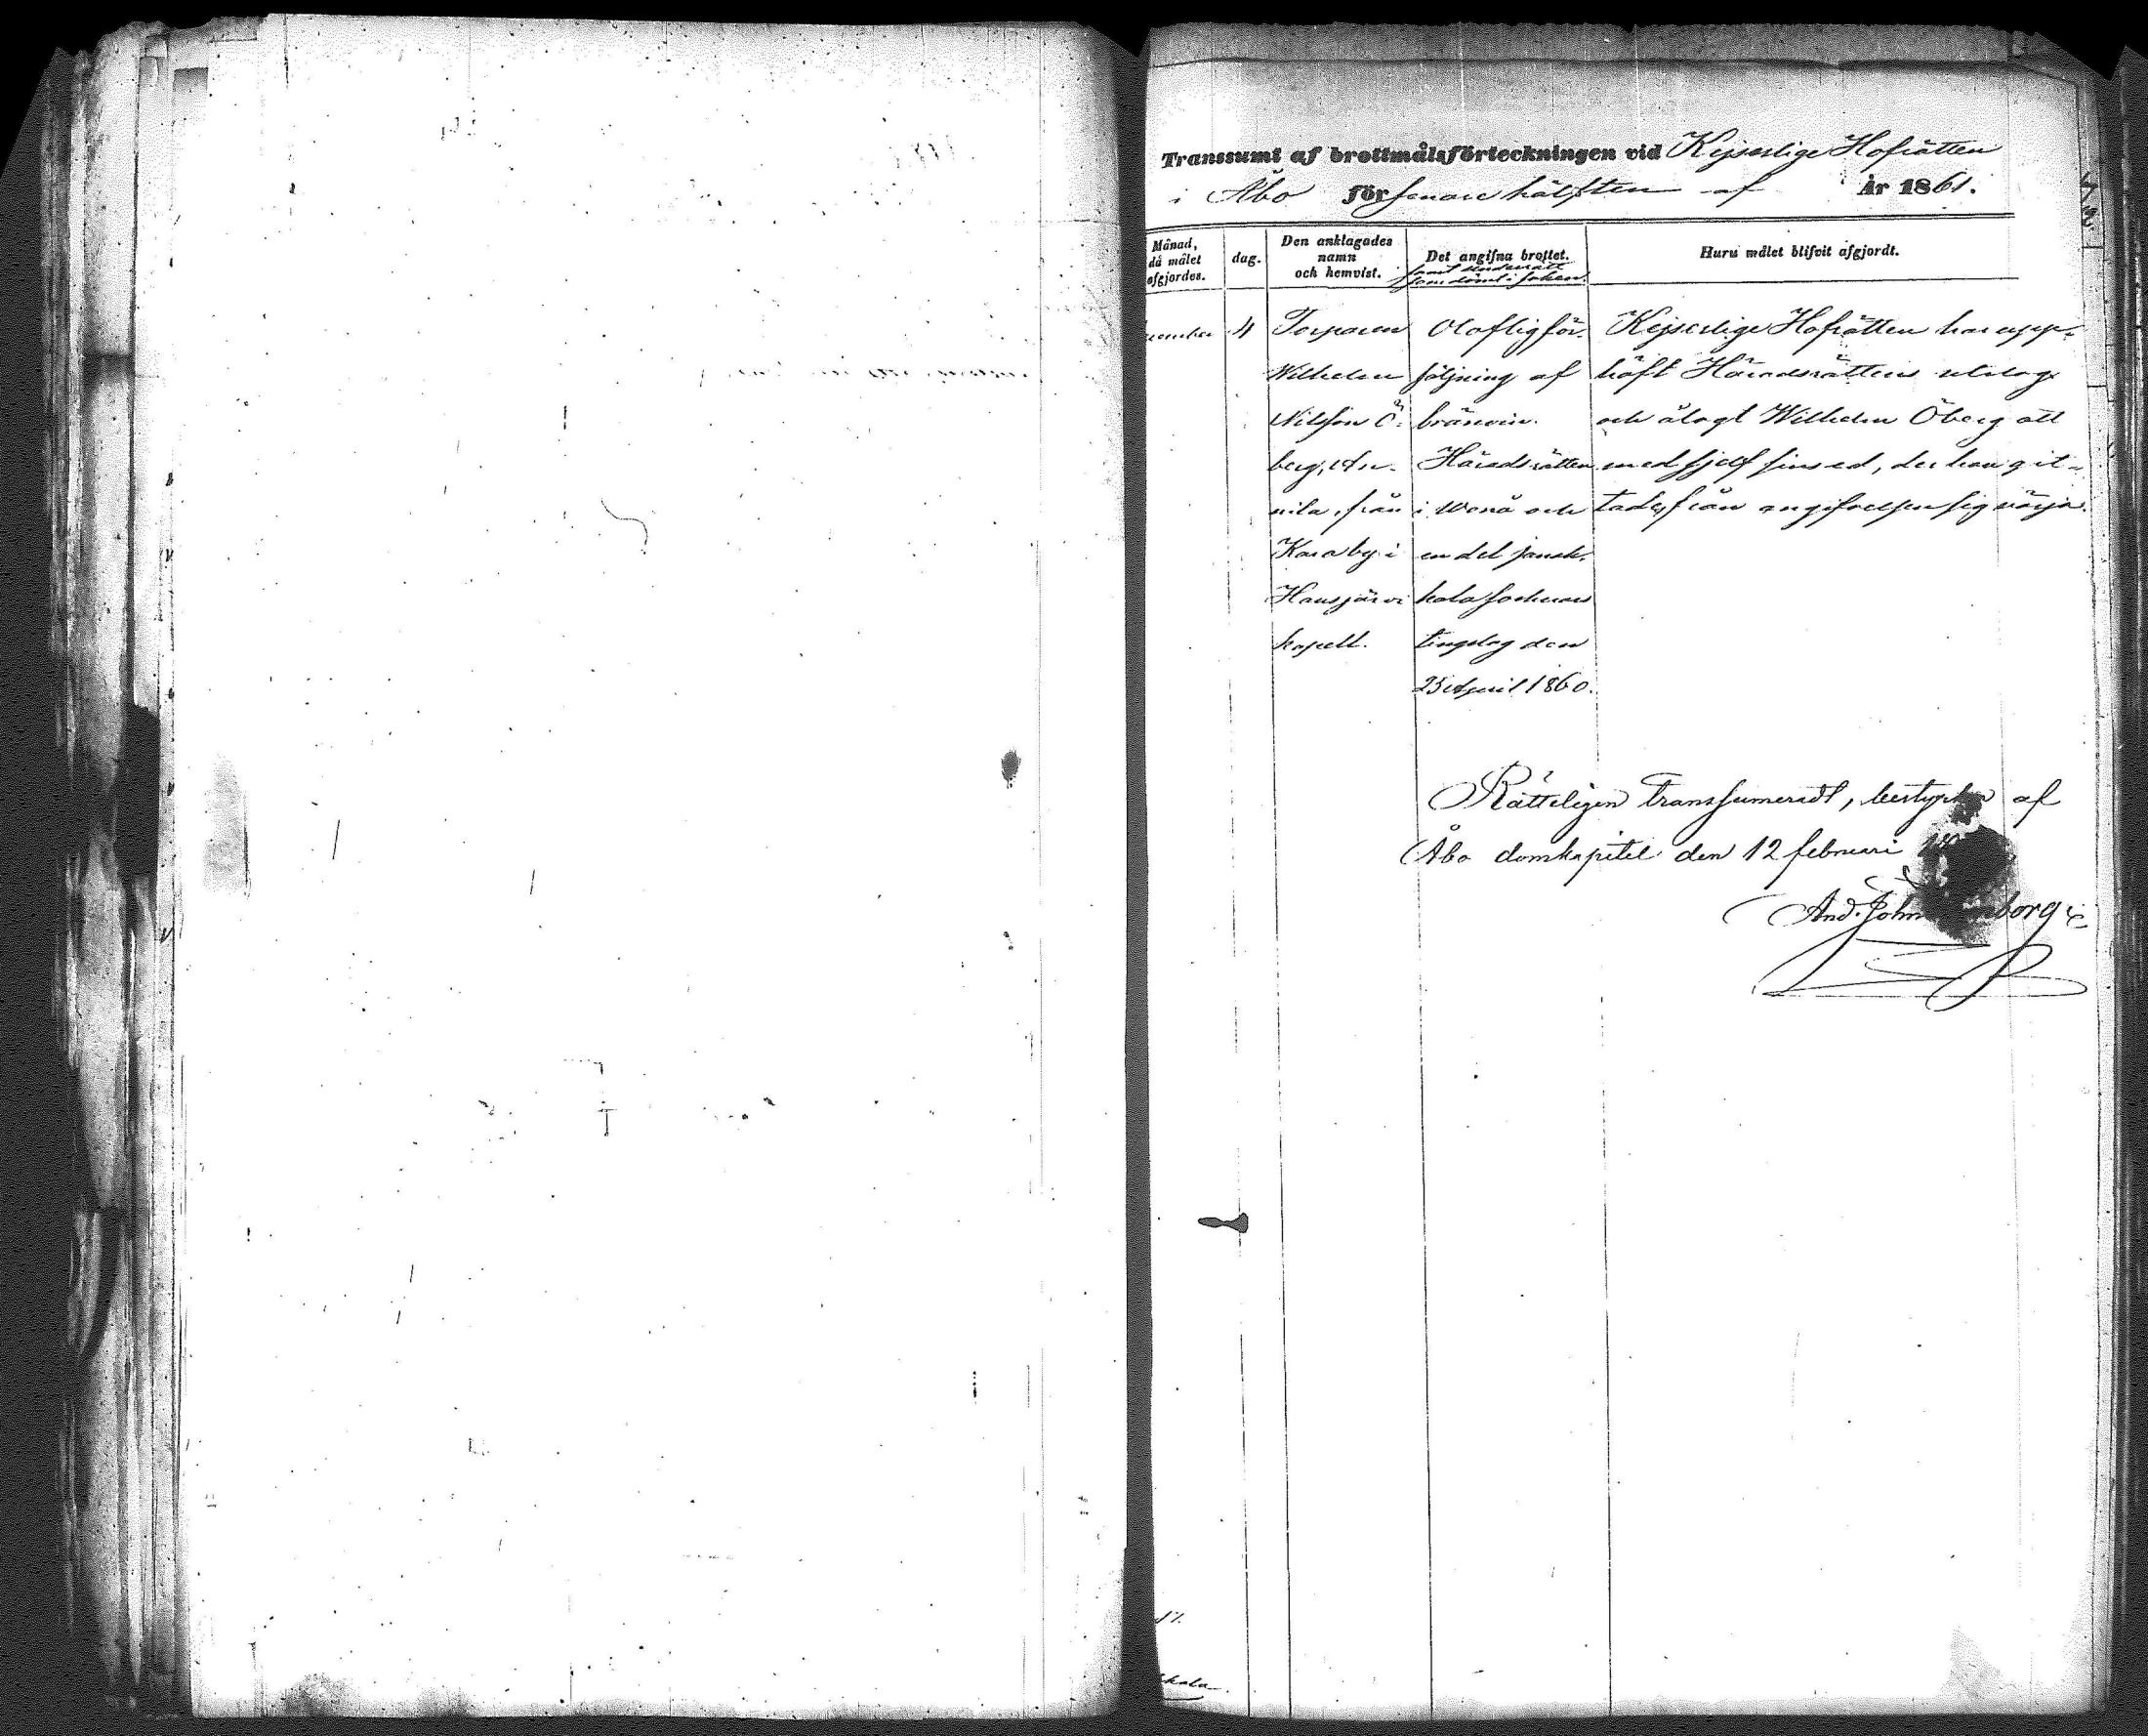 Transsumt af brottmålsförteckningen vid Kejserlige Hofrätten
i Åbo för senare hälften af År 1861.
Månad, då målet afgjordes.
dag.
Den anklagades namn och hemvist.
Det angifna brottet.
samt Underrätt som dömt i saken.
Huru målet blifvit afgjordt.
4
Torparen
Wilhelm
Nilsson Ö-
berg,
från
Karaby i
Hausjärvi
kapell.
Olaflig för-
säljning af
bränvin.
Häradsrätten
i Wånå och
en del Janak-
kala socknars
tingslag den
25 April 1860.
Kejserlige Hofrätten har upp-
häft Häradsrättens utslag
och ålagt Wilhelm Öberg att
med sjelf sins ed, der han git-
tade, från angifvelsen sig värja.
Rätteligen transsumeradt, bestyrkes af
Åbo domkapitel den 12 februari
And. Joh
borg
kala